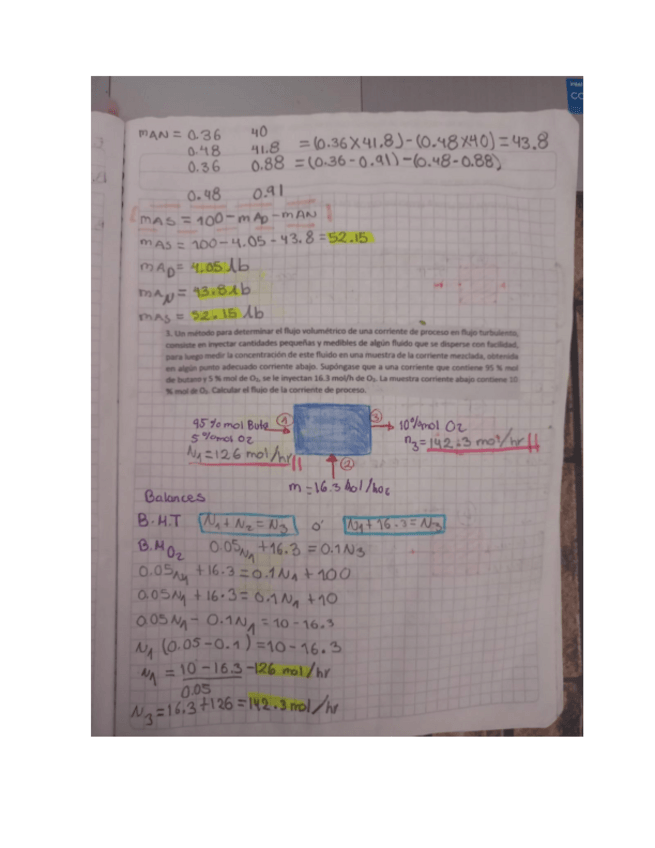 mAN = 0.36 40
0.48 41.8 = (0.36 X 41.8) - (0.48 X 40) = 43.8
0.36 0.88 = (0.36 - 0.91) - (0.48 - 0.88)
0.48 0.91
mAS = 100 - mAD - mAN
mAS = 100 - 4.05 - 43.8 = 52.15
mAD = 4.05 lb
mAN = 43.8 lb
mAS = 52.15 lb
3. Un método para determinar el flujo volumétrico de una corriente de proceso en flujo turbulento,
consiste en inyectar cantidades pequeñas y medibles de algún fluido que se disperse con facilidad,
para luego medir la concentración de este fluido en una muestra de la corriente mezclada, obtenida
en algún punto adecuado corriente abajo. Supóngase que a una corriente que contiene 95 % mol
de butano y 5 % mol de O₂, se le inyectan 16.3 mol/h de O₂. La muestra corriente abajo contiene 10
% mol de O₂. Calcular el flujo de la corriente de proceso.
95 % mol Buta 1 3 10% mol O2
5 % mol O2 n3 = 142.3 mol/hr
N1 = 126 mol/hr
2
m = 16.3
Balances
B.M.T N1 + N2 = N3 o' N1 + 16.3 = N3
B.M O2 0.05 N1 + 16.3 = 0.1 N3
0.05 N1 + 16.3 = 0.1 N1 + 100
0.05 N1 + 16.3 = 0.1 N1 + 10
0.05 N1 - 0.1 N1 = 10 - 16.3
N1 (0.05 - 0.1) = 10 - 16.3
N1 = 10 - 16.3 - 126 mol/hr
0.05
N3 = 16.3 + 126 = 142.3 mol/hr